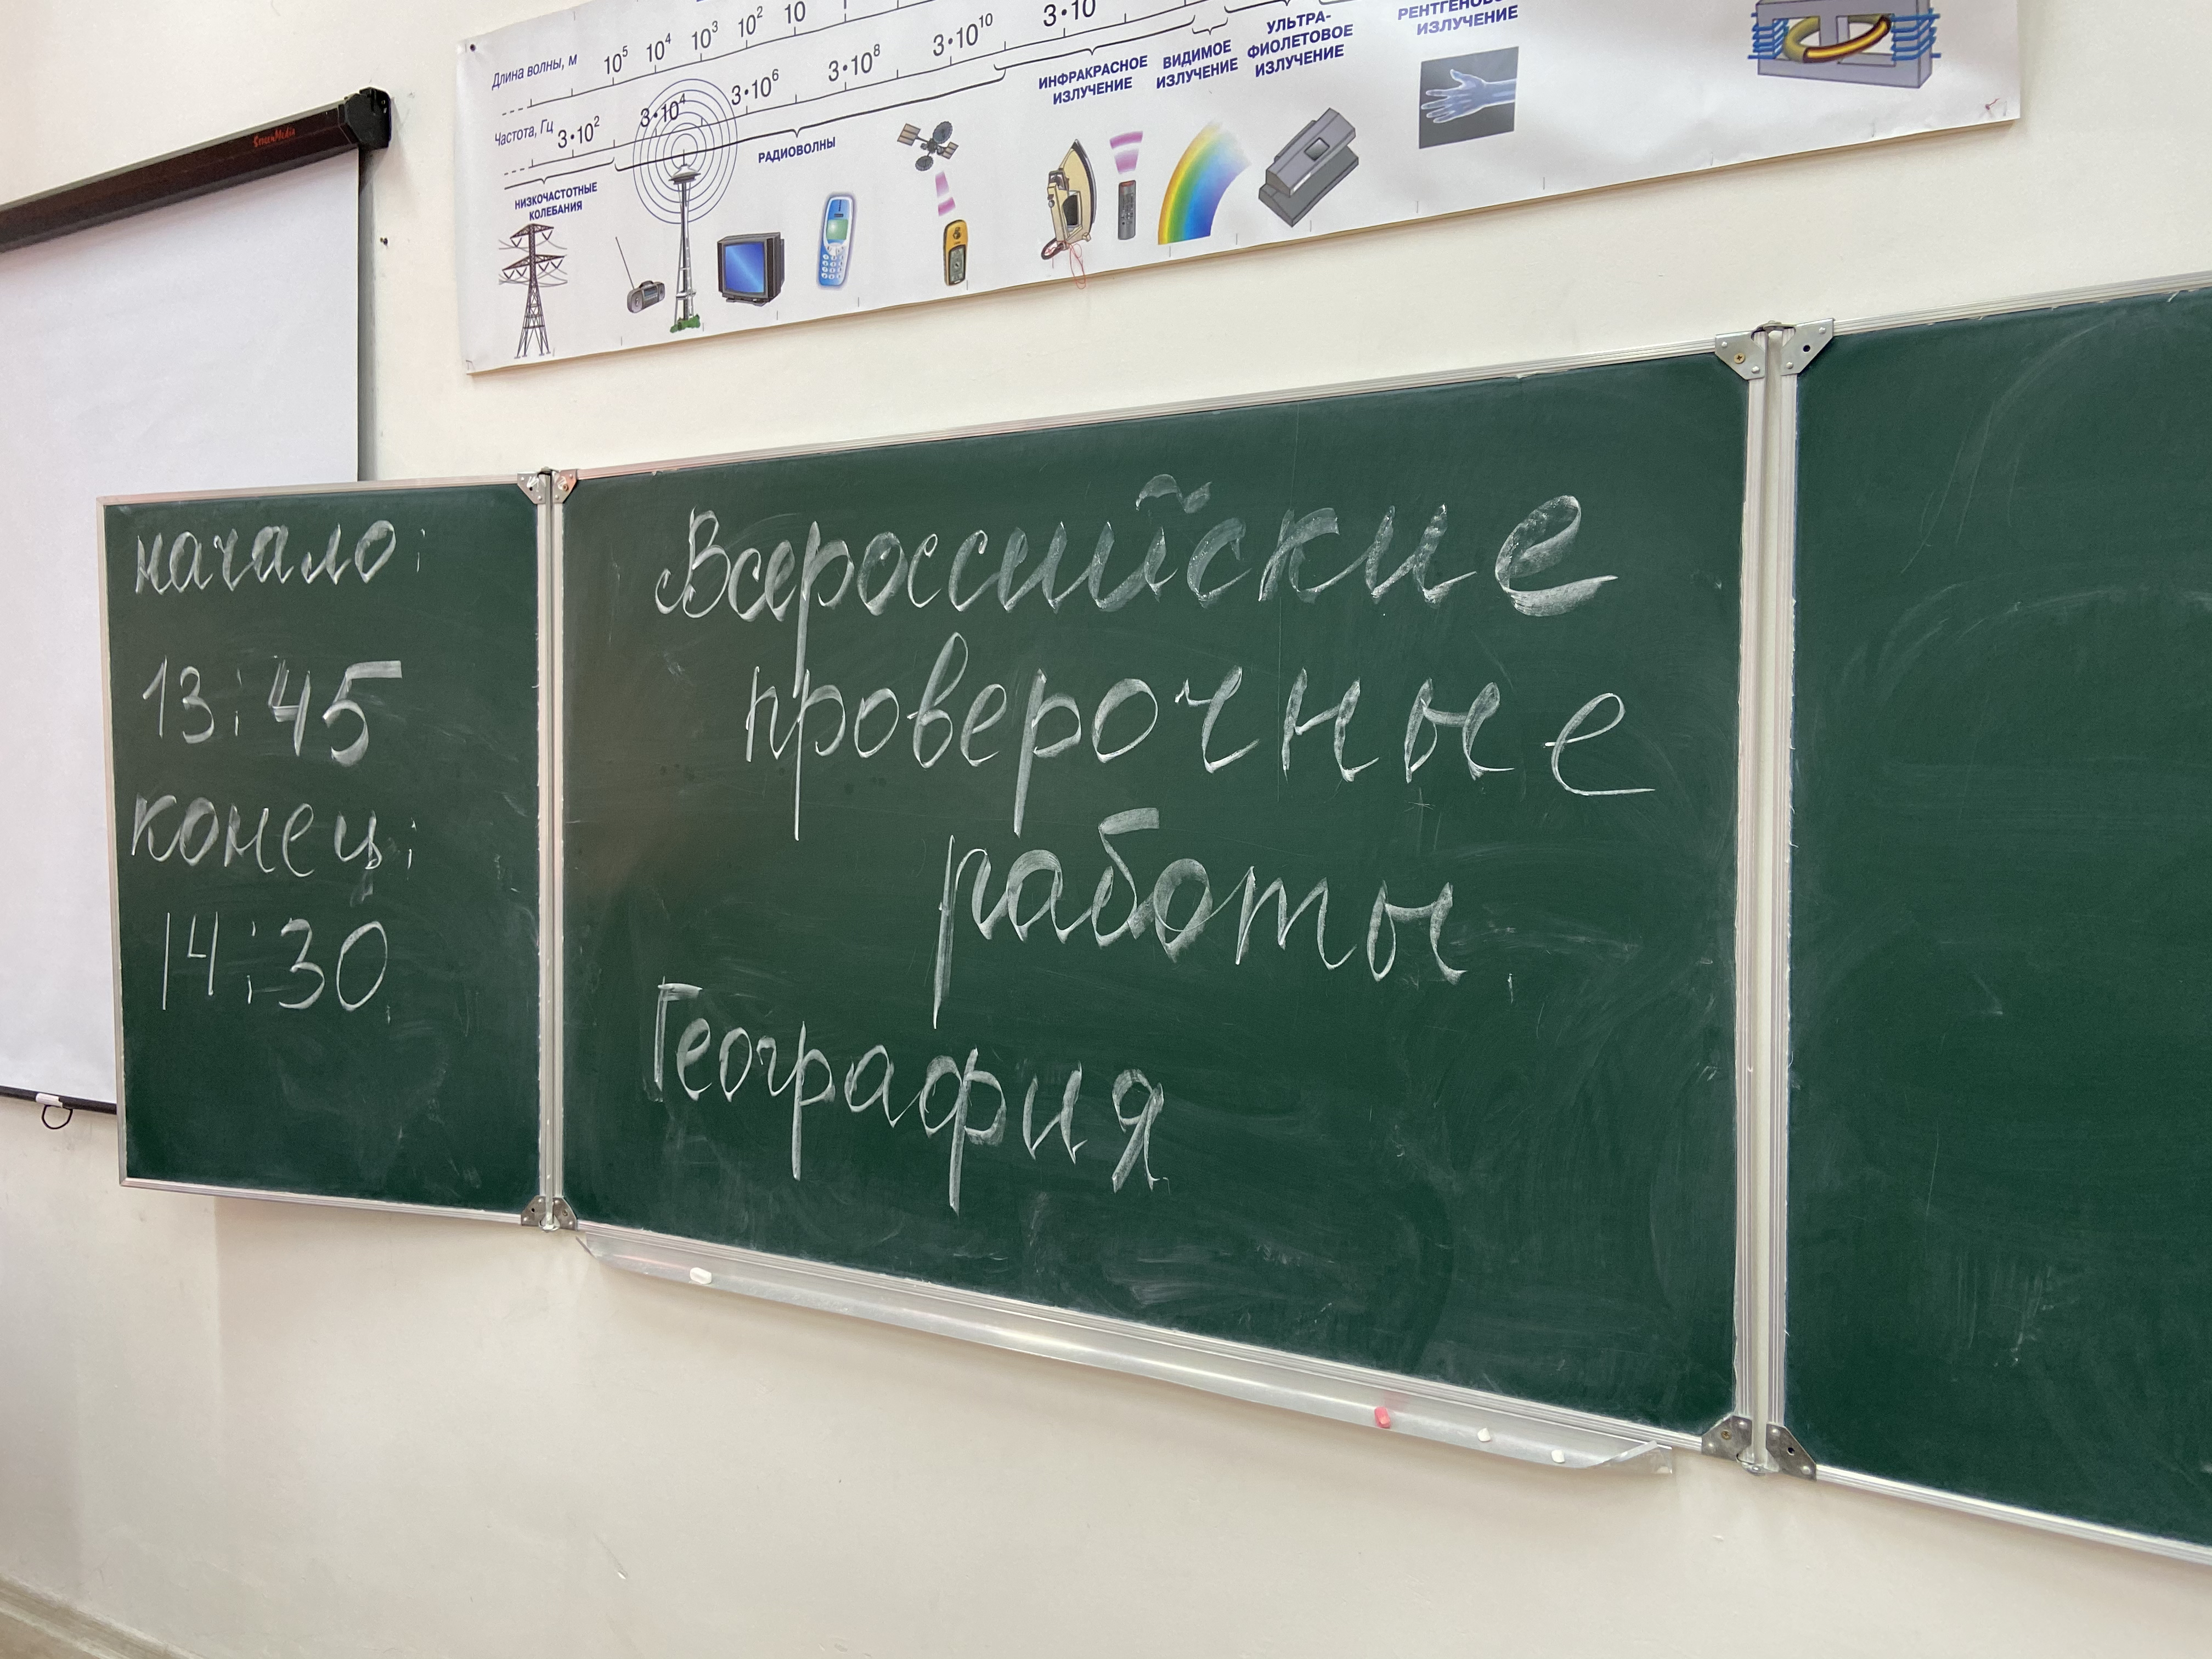 Длина волны, м 10⁵ 10⁴ 10³ 10² 10
Частота, Гц 3·10² 3·10⁴ 3·10⁶ 3·10⁸ 3·10¹⁰ 3·10
НИЗКОЧАСТОТНЫЕ
КОЛЕБАНИЯ
РАДИОВОЛНЫ
ИНФРАКРАСНОЕ
ИЗЛУЧЕНИЕ
ВИДИМОЕ
ИЗЛУЧЕНИЕ
УЛЬТРА-
ФИОЛЕТОВОЕ
ИЗЛУЧЕНИЕ
ИЗЛУЧЕНИЕ
ScreenMedia
начало:
13:45
конец:
14:30
Всероссийские
проверочные
работы
География